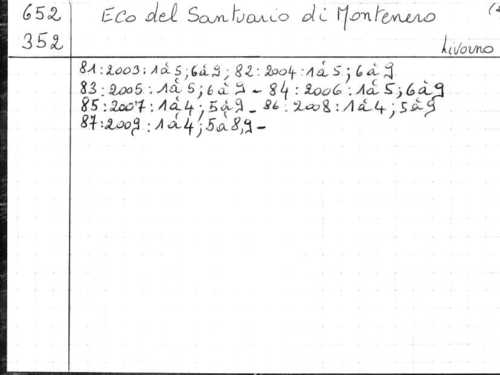 652
352
Eco del Santuario di Montenero
Livorno
81:2003:1à5;6à9; 82:2004:1à5;6à9
83:2005:1à5;6à9 - 84:2006:1à5;6à9
85:2007:1à4;5à9 - 86:2008:1à4;5à9
87:2009:1à4;5à8,9-